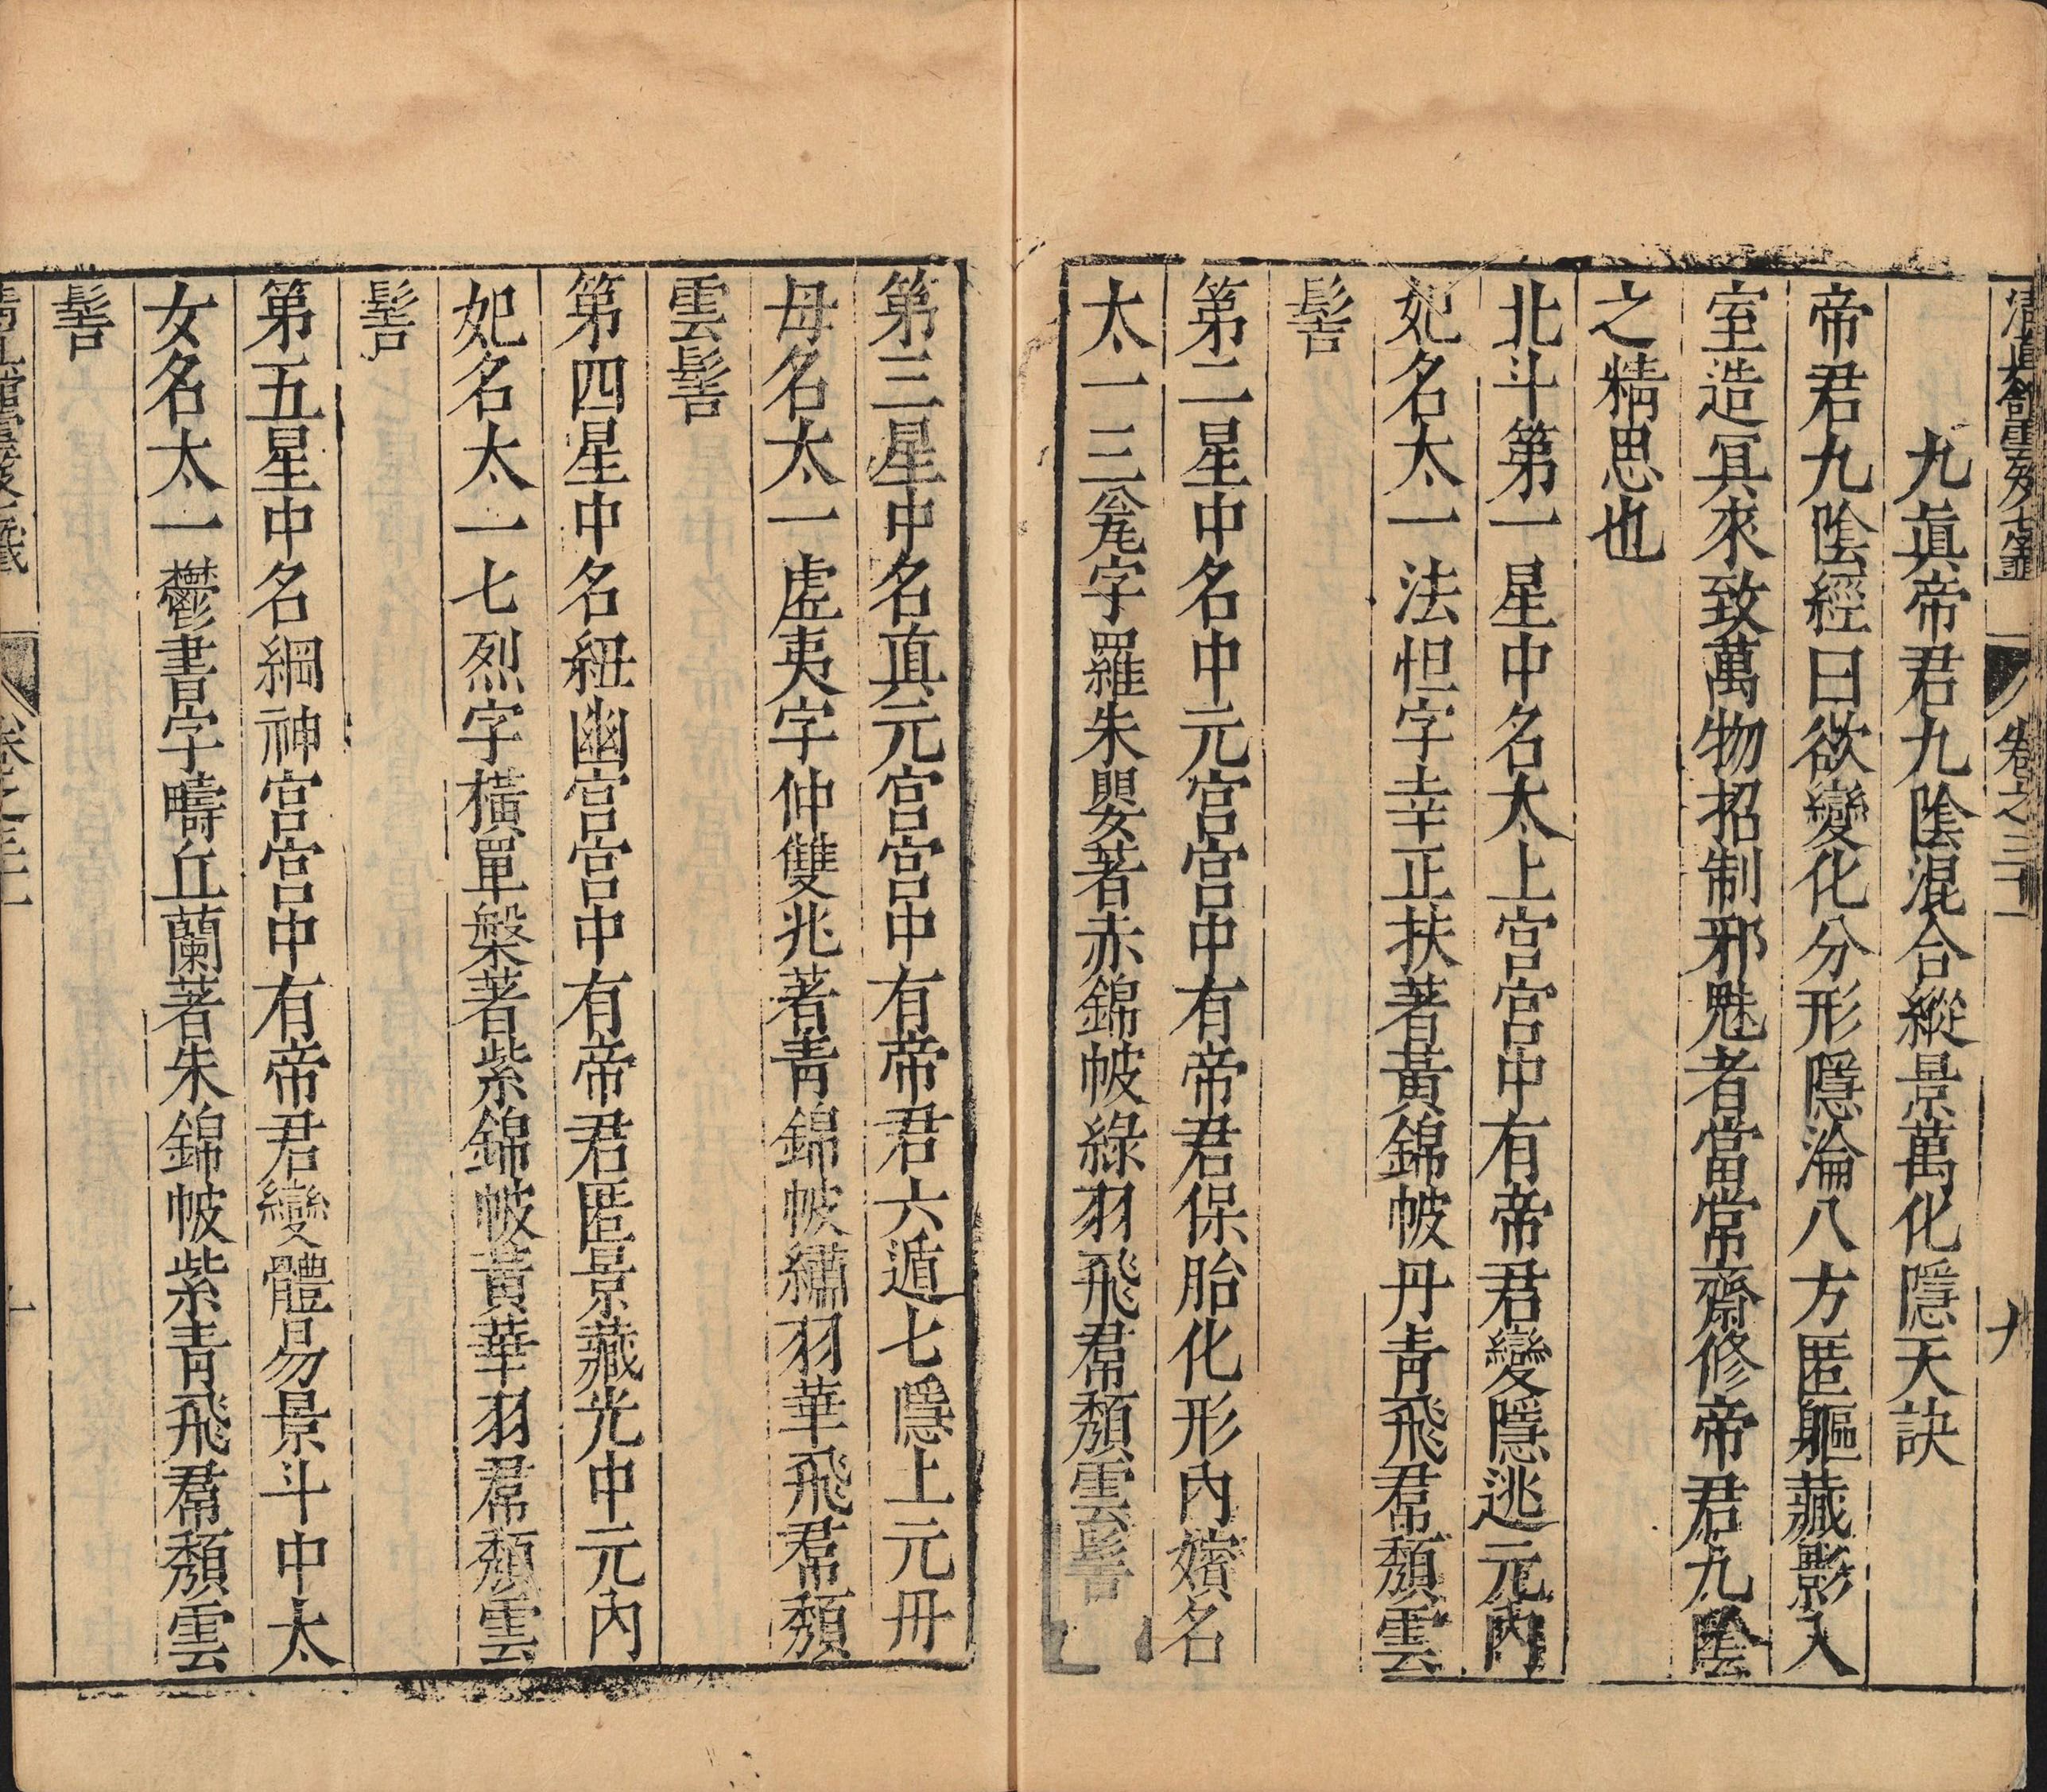 九眞帝君九陰混合縱景萬化隱天訣
帝君九陰經曰欲變化分形隱淪八方匿軀藏影入
室造冥來致萬物招制邪魅者當常齋修帝君九陰
之精思也
北斗第一星中名太上宮宮中有帝君變隱逃元內
妃名太一法怛字幸正扶著黃錦帔丹青飛帬頹雲
髻
第二星中名中元宮宮中有帝君保胎化形內嬪名
太一三字羅朱嬰著赤錦帔綠羽飛帬頹雲髻
第三星中名眞元宮宮中有帝君六遁七隱上元丹
母名太一虛夷字仲雙兆著青錦帔繡羽華飛帬頹
雲髻
第四星中名紐幽宮宮中有帝君匿景藏光中元內
妃名太一七烈字橫單槃著紫錦帔黃華羽帬頹雲
髻
第五星中名綱神宮宮中有帝君變體易景斗中太
女名太一鬱書字疇丘蘭著朱錦帔紫青飛帬頹雲
髻